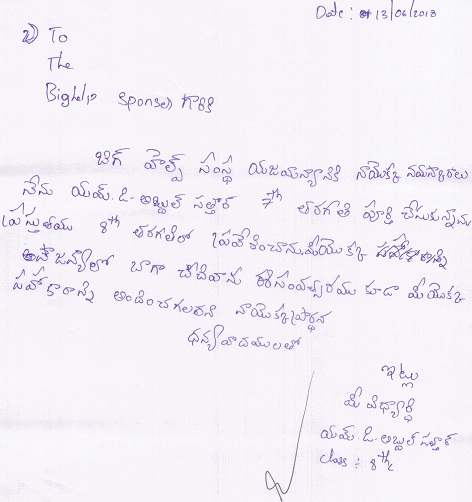 Date : 13/06/2018
2) To
The
Bighelp sponsers గారికి
బిగ్ హెల్ప్ సంస్థ యజమాన్యానికి నాయొక్క నమస్కారాలు
నేను యమ్.డి. అబ్దుల్ సత్తార్ 7th తరగతి పూర్తి చేసుకున్నాను
ప్రస్తుతము 8th తరగతిలో ప్రవేశించాను. మీయొక్క
సౌజన్యాలో బాగా చదివాను ఈసంవత్సరము కూడా మీయొక్క
సహాకారాన్ని అందించగలరని నాయొక్క ప్రార్థన
ధన్యవాదములతో
ఇట్లు
మీ విధ్యార్థి
యమ్.డి. అబ్దుల్ సత్తార్
class : 8th